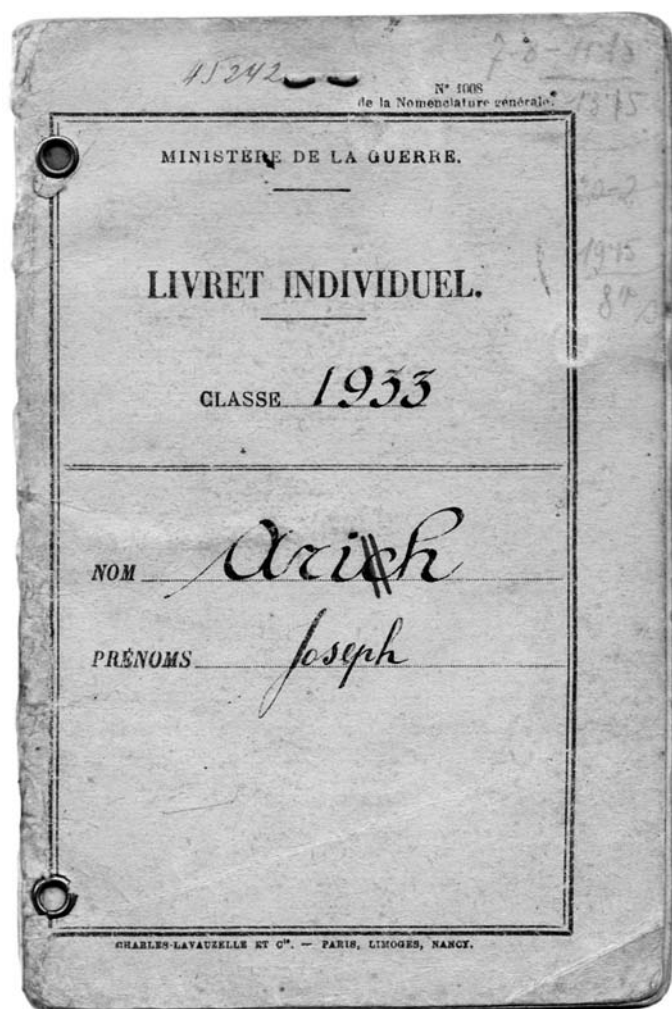 45242
N° 1008
de la Nomenclature générale.
MINISTÈRE DE LA GUERRE.
LIVRET INDIVIDUEL.
CLASSE 1933
NOM
PRÉNOMS Joseph
CHARLES-LAVAUZELLE ET Cie. — PARIS, LIMOGES, NANCY.